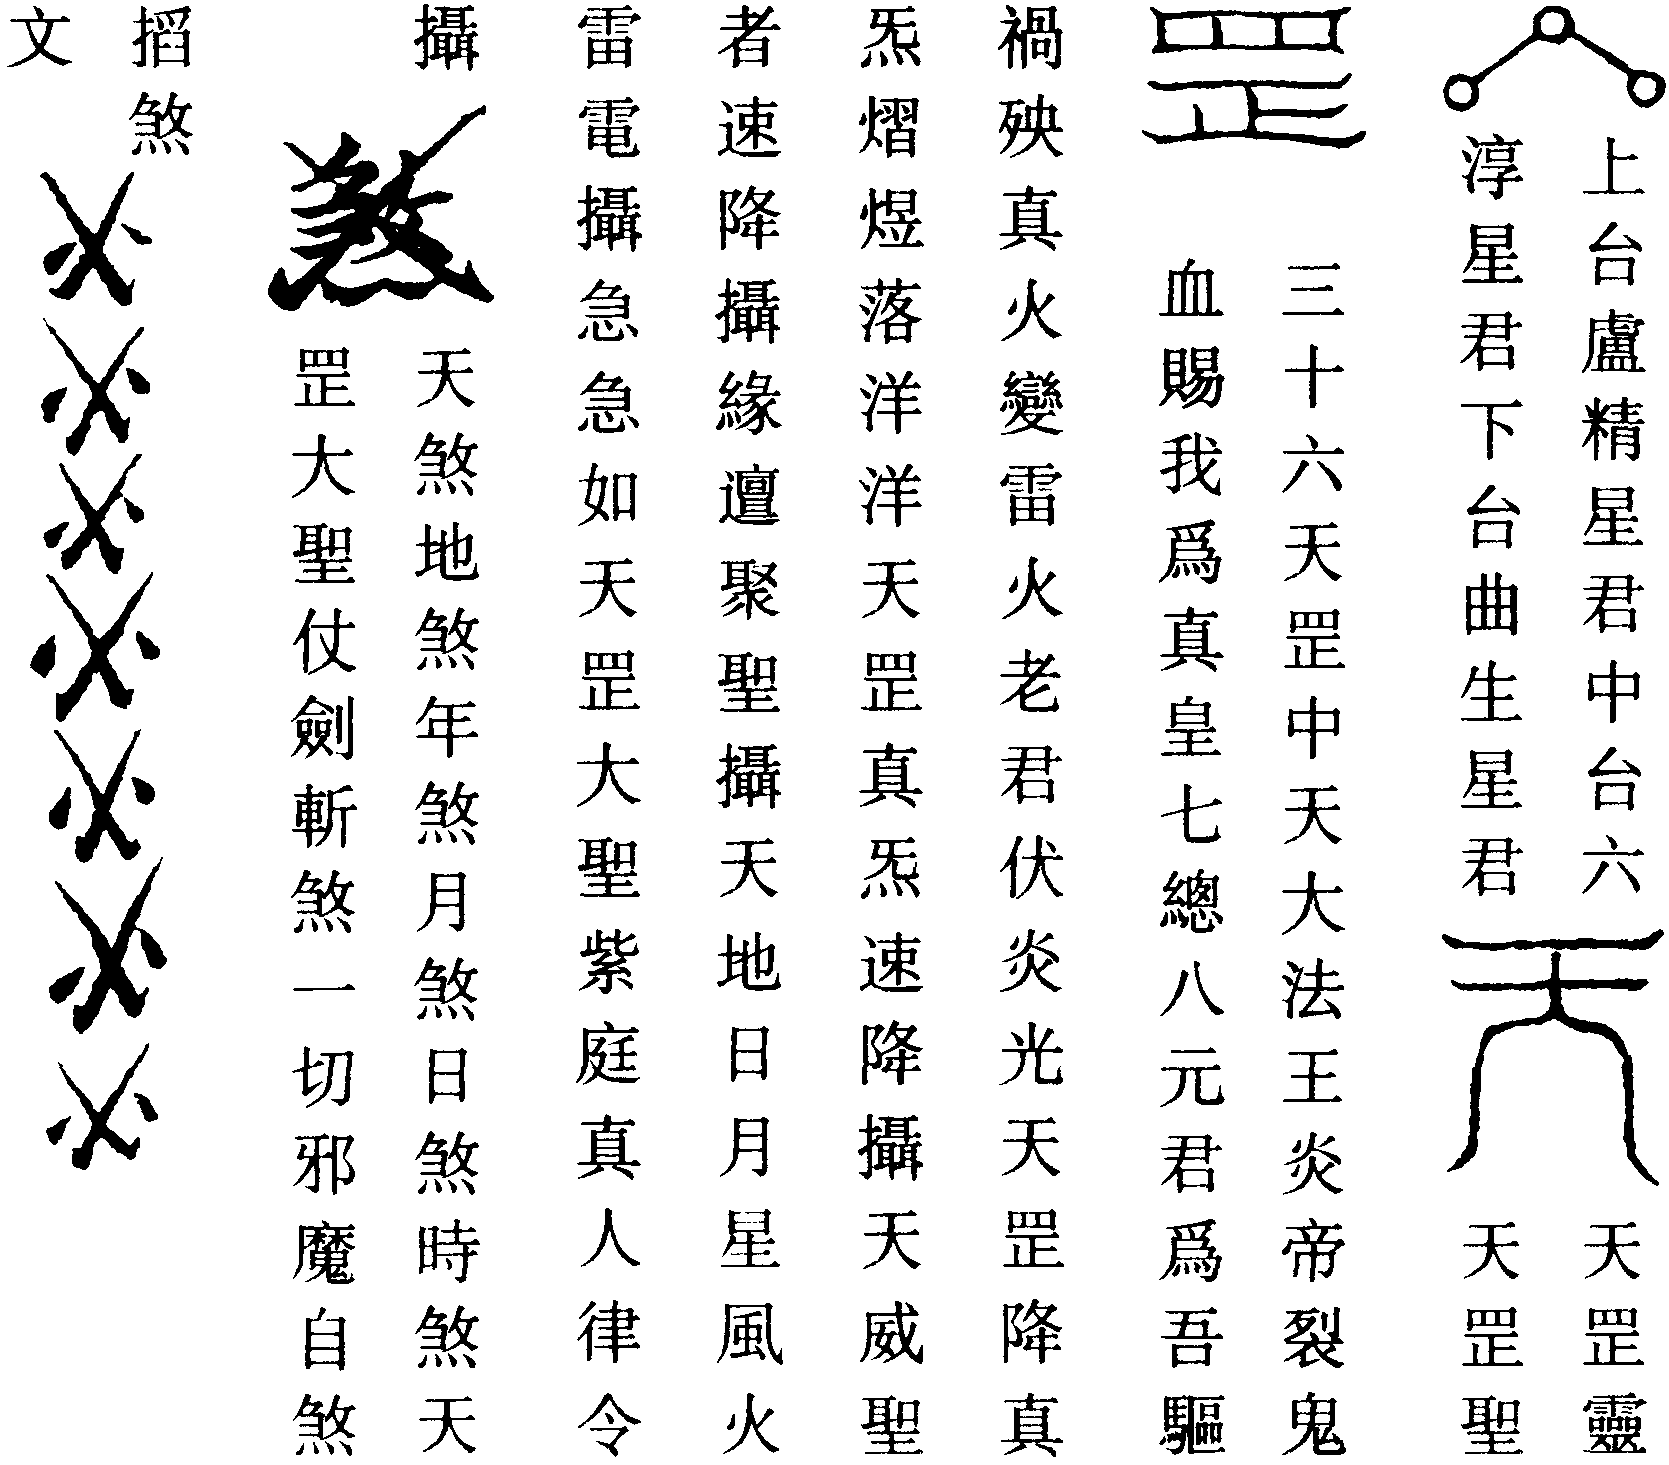 上台盧精星君中台六
淳星君下台曲生星君
天罡靈
天罡聖
三十六天罡中天大法王炎帝裂鬼
血賜我爲真皇七總八元君爲吾驅
禍殃真火變雷火老君伏炎光天罡降真
炁熠煜落洋洋天罡真炁速降攝天威聖
者速降攝緣邅聚聖攝天地日月星風火
雷電攝急急如天罡大聖紫庭真人律令
攝
煞
天煞地煞年煞月煞日煞時煞天
罡大聖仗劍斬煞一切邪魔自煞
搯煞
文